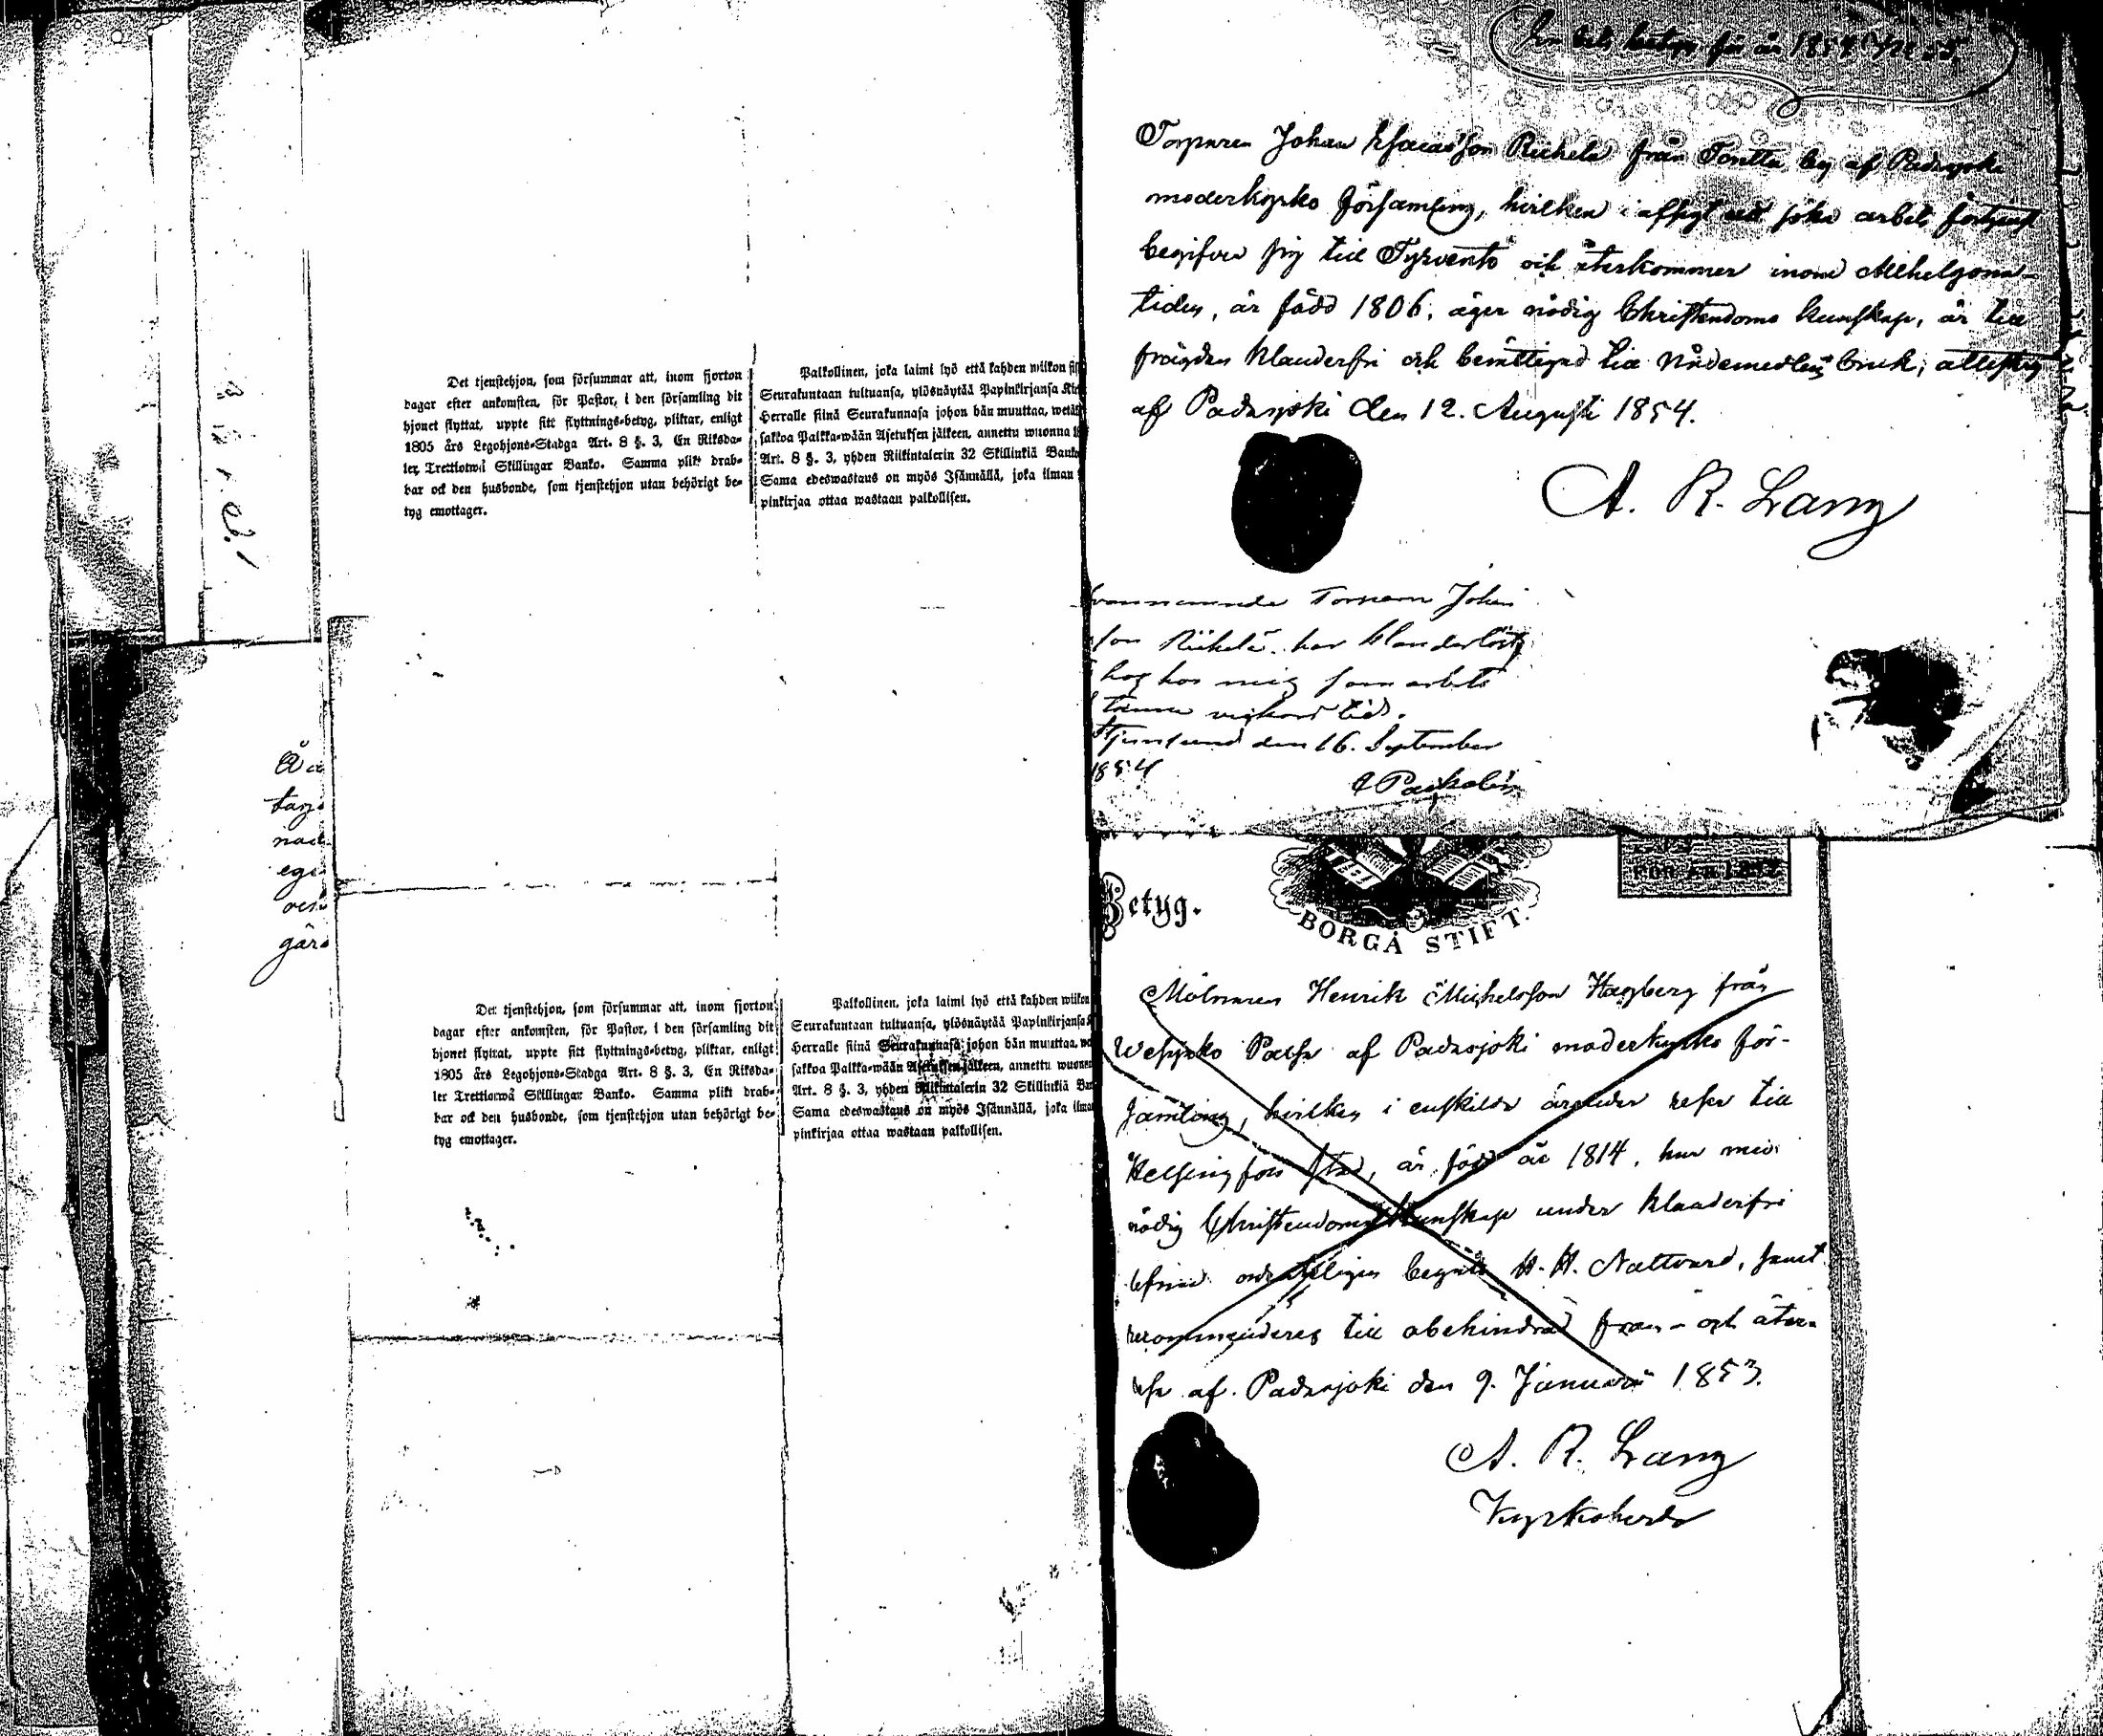 Det tjenstehjon, som försummar att, inom fjorton
dagar efter ankomsten, för Pastor, i den församling dit
hjonet flyttat, uppte sitt flyttnings-betyg, pliktar, enligt
1805 års Legohjons-Stadga Art. 8 §. 3, En Riksda-
ler Trettiotwå Skillingar Banko. Samma plikt drab-
bar ock den husbonde, som tjenstehjon utan behörigt be-
tyg emottager.
Palkollinen, joka laimi lyö että kahden wiikon
Seurakuntaan tultuansa, ylösnäytää Papinkirjansa
Herralle siinä Seurakunnasa johon hän muuttaa,
sakkoa Palkka-wään Asetuksen jälkeen, annettu wuonna
Art. 8 §. 3, yhden Riikintalerin 32 Skillinkiä
Sama edeswastaus on myös Isännällä, joka ilman
pinkirjaa ottaa wastaan palkollisen.
Det tjenstehjon, som försummar att, inom fjorton
dagar efter ankomsten, för Pastor, i den församling dit
hjonet flyttat, uppte sitt flyttnings-betyg, pliktar, enligt
1805 års Legohjons-Stadga Art. 8 §. 3, En Riksda-
ler Trettiotwå Skillingar Banko. Samma plikt drab-
bar ock den husbonde, som tjenstehjon utan behörigt be-
tyg emottager.
Palkollinen, joka laimi lyö että kahden wiikon
Seurakuntaan tultuansa, ylösnäytää Papinkirjansa
Herralle siinä Seurakunnasa johon hän muuttaa,
sakkoa Palkka-wään Asetuksen jälkeen, annettu
Art. 8 §. 3, yhden Riikintalerin 32 Skillinkiä
Sama edeswastaus on myös Isännällä, joka
pinkirjaa ottaa wastaan palkollisen.
för år 1854
Torparen Johan Esaiasson från by af Padasjoki
moderkyrko församling, hvilken i affigt att söka arbete
begifver sig till Tyrvento och återkommer inom Allhelgona-
tiden, är född 1806, äger nödig Christendoms kunskap, är till
frägden klanderfri och berättigad till Nådemedlens bruk;
af Padasjoki den 12. Augusti 1854.
A. R. Lang
Torparen Johan
son har klanderlöst
hos mig som arbets
tid.
den 16. September
1854
Betyg.
BORGÅ STIFT.
FÖR ÅR
Mölnaren Henrik Michelsson Hagberg från
af Padasjoki moderkyrko för-
samling, hvilken i enskilda ärender reser till
Helsingfors stad, är född år 1814, har med
nödig Christendoms kunskap under klanderfri
begått H. H. Nattvard, samt
recommenderes till obehindrad fram- och åter-
af Padasjoki den 9. Januarii 1853.
A. R. Lang
Kyrkoherde